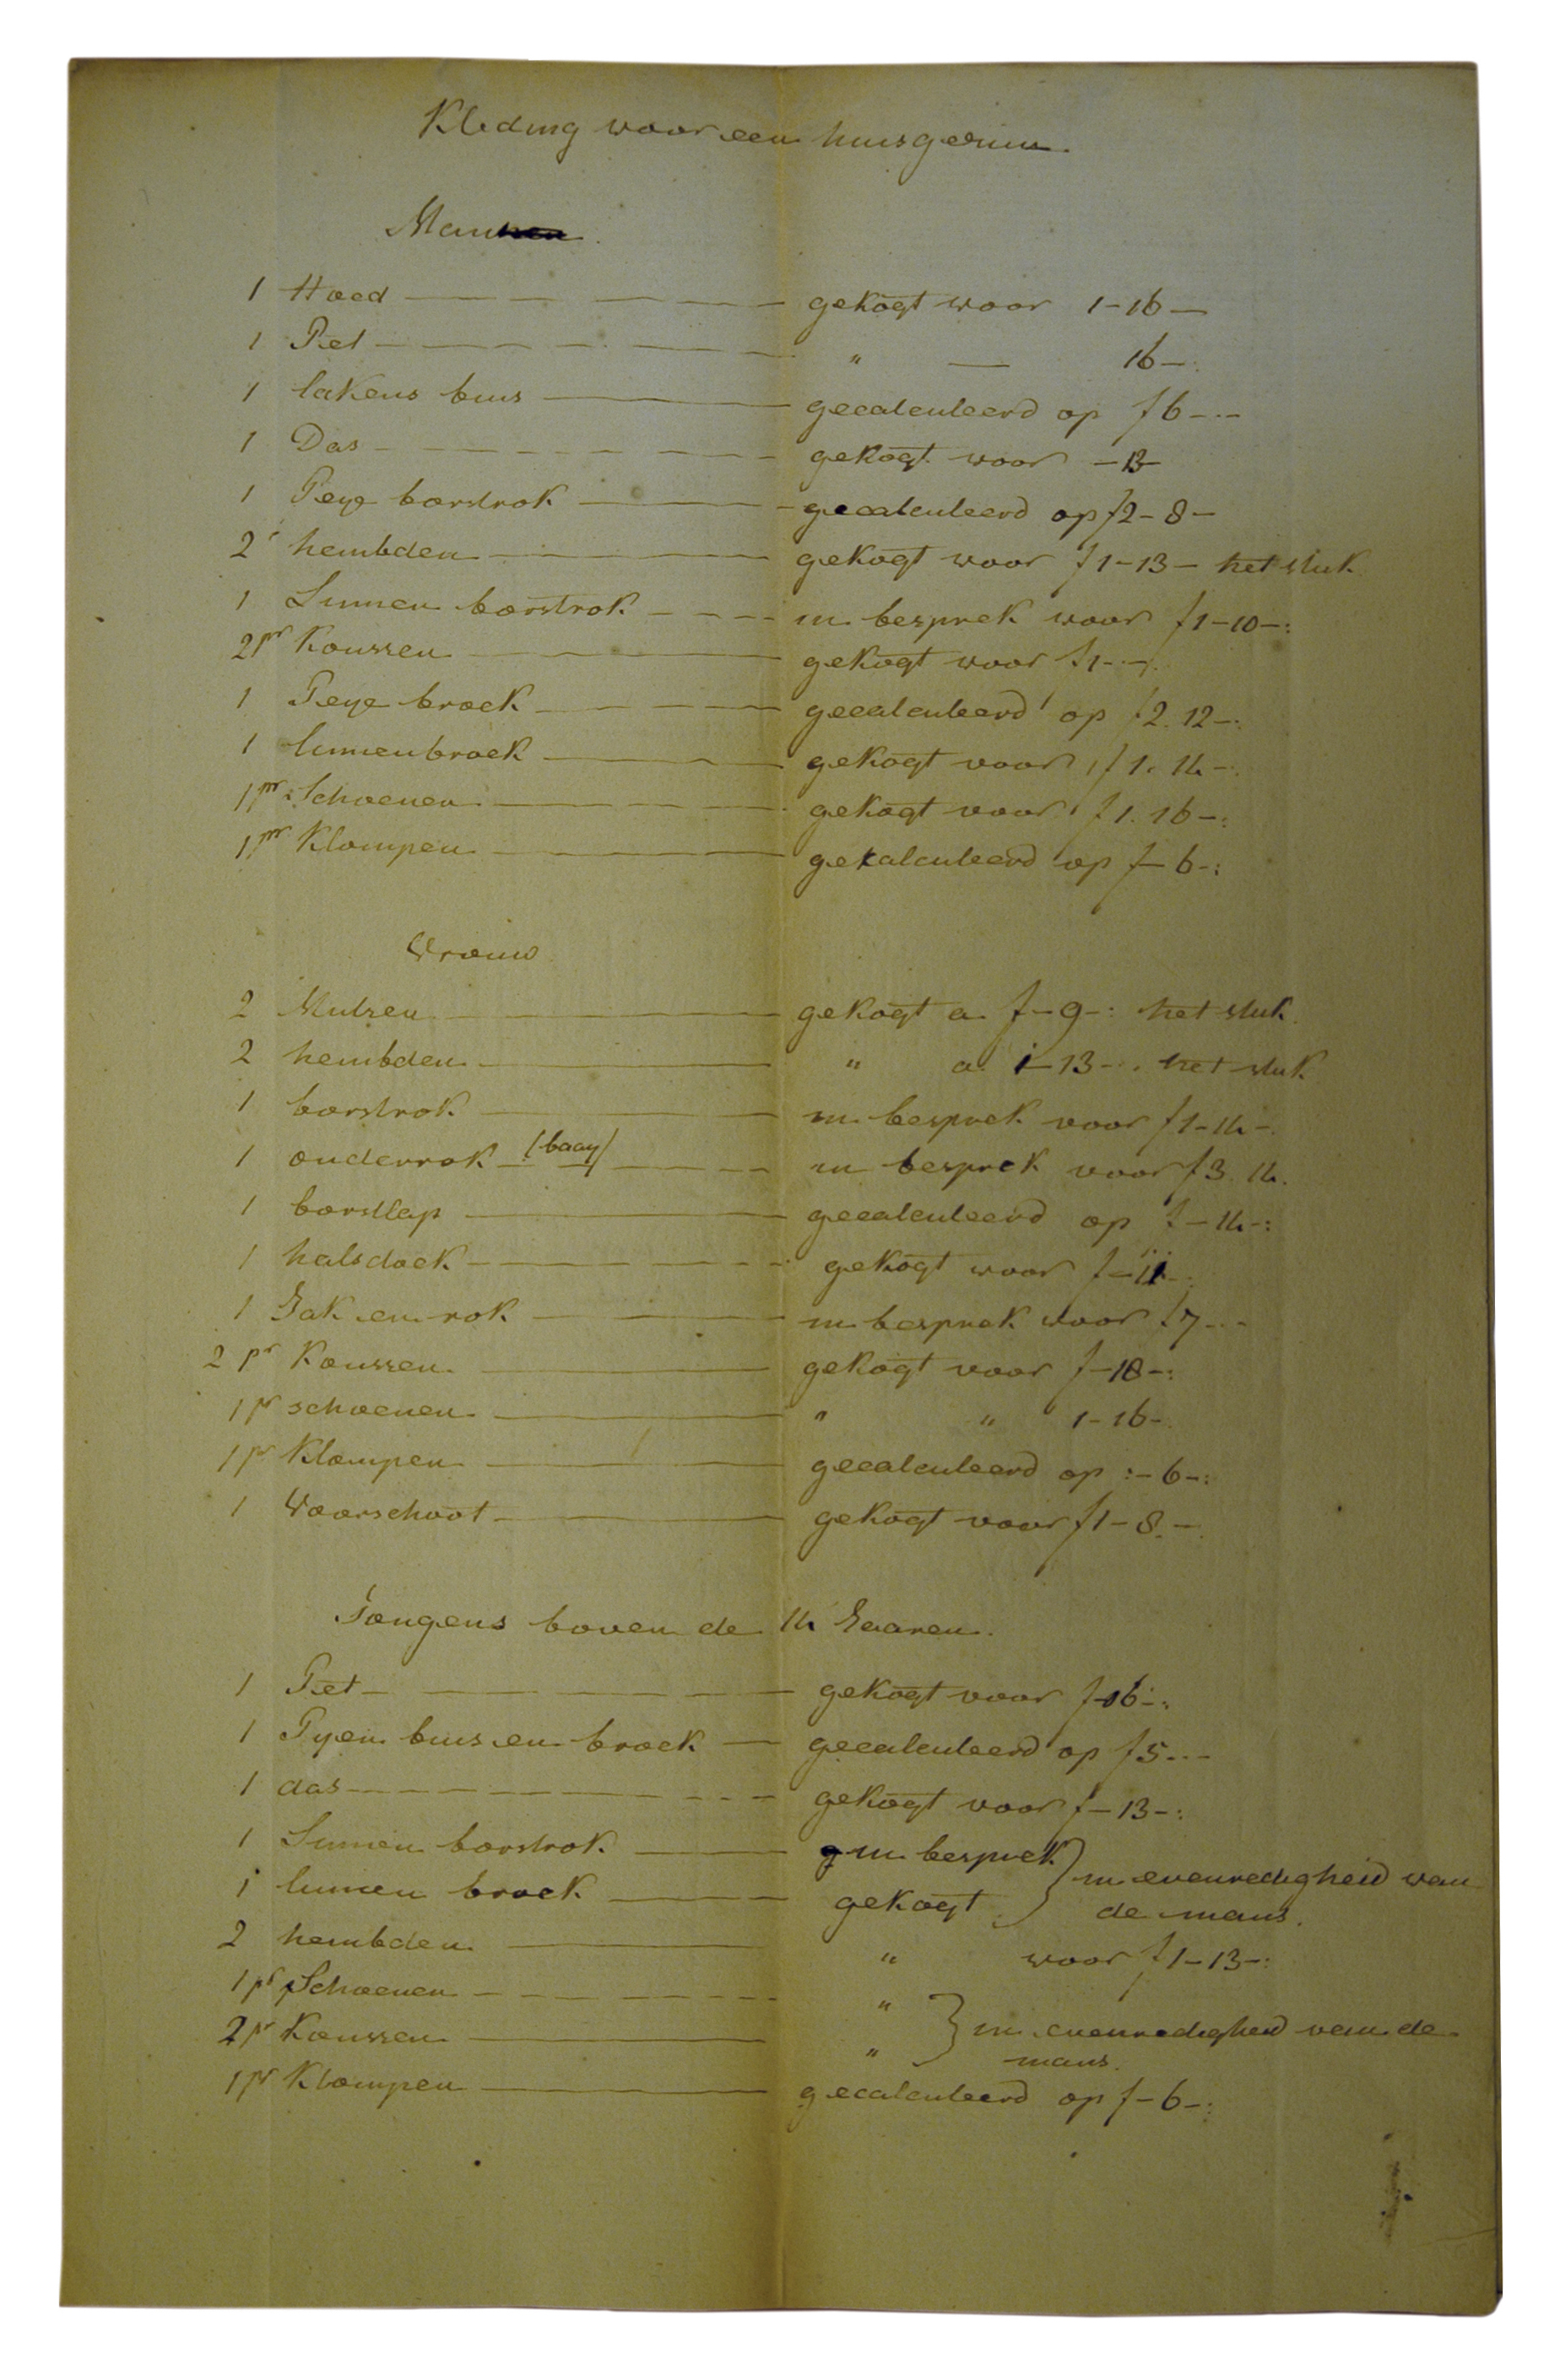 Kleding voor een huisgezin
Man
1 Hoed — gekogt voor 1-16-
1 Pet — " — 16-:
1 lakens buis — gecalculeerd op f 6-.-
1 Das — gekogt voor -13-
1 Peye borstrok — gecalculeerd op f2-8-
2 hembden — gekogt voor f1-13- het stuk
1 Linnen borstrok — in besprek voor f1-10-:
2 pr Koussen — gekogt voor f1-.-.
1 Peye broek — gecalculeerd op f2.12-:
1 linnenbroek — gekogt voor f1.14-:
1 pr Schoenen — gekogt voor f1.16-:
1 pr Klompen — gekalculeerd op f-6-:
Vrouw
2 Mutsen — gekogt a f-9-: het stuk.
2 hembden — " a 1-13-. het stuk
1 borstrok — in besprek voor f1-14-.
1 onderrok (baay) — in besprek voor f3.14.
1 borstlap — gecalculeerd op f-14-:
1 halsdoek — gekogt voor f-11-.
1 Jak en rok — in besprek voor f7-.-
2 pr Koussen — gekogt voor f-18-:
1 pr schoenen — " " 1-16-.
1 pr Klompen — gecalculeerd op :-6-:
1 Voorschoot — gekogt voor f1-8.-.
Jongens boven de 14 Jaaren.
1 Pet — gekogt voor f-16-:
1 Pyen buis en broek — gecalculeerd op f5-.-
1 das — gekogt voor f-13-:
1 Linnen borstrok — in besprek } in evenredigheid van
1 linnen broek — gekogt } de mans.
2 hembden — " voor f1-13-:
1 pr Schoenen — " } in evenredigheid van de
2 pr Koussen — " } mans.
1 pr Klompen — gecalculeerd op f-6-: